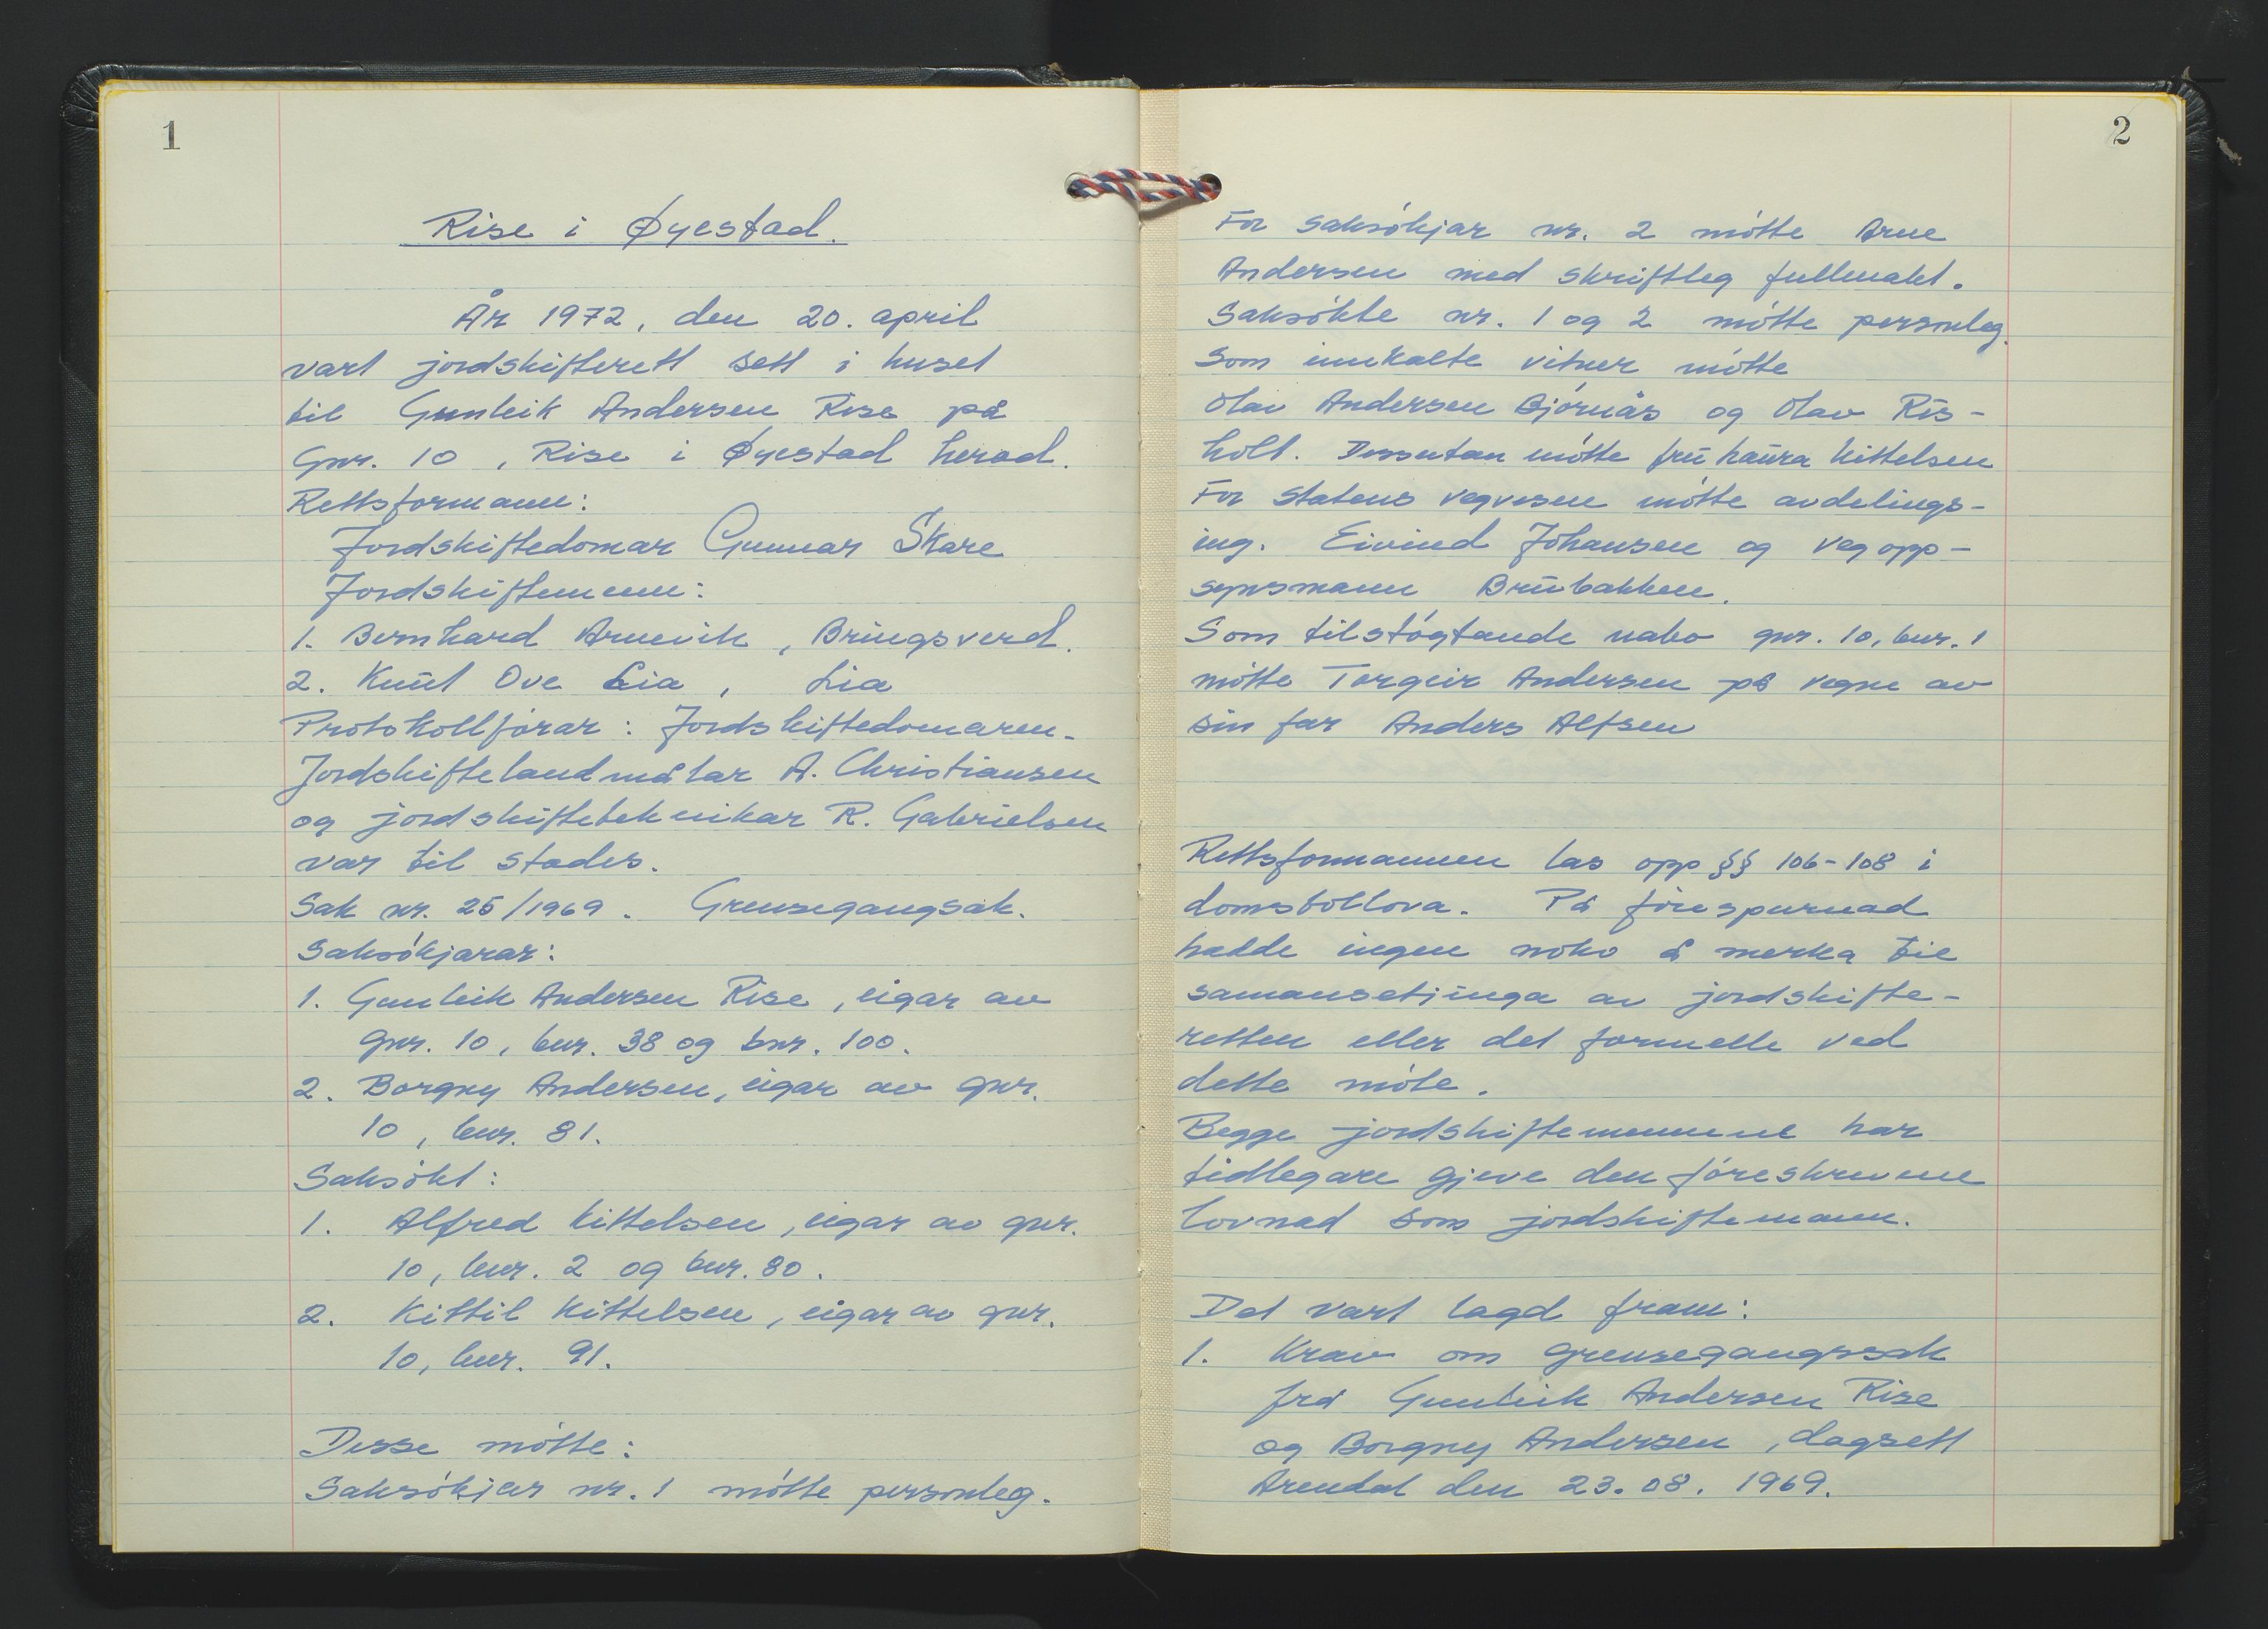 1
Rise i Øyestad.
År 1972, den 20. april
vart jordskifterett sett i huset
til Gunleik Andersen Rise på
Gnr. 10, Rise i Øyestad herad.
Rettsformann:
Jordskiftedomar Gunnar Skare
Jordskiftemenn:
1. Bernhard Arnevik, Bringsverd.
2. Knut Ove Lia, Lia
Protokollførar: Jordskiftedomaren.
Jordskiftelandmålar A. Christiansen
og jordskifteteknikar R. Gabrielsen
var til stades.
Sak nr. 25/1969. Grensegangsak.
Saksøkjarar:
1. Gunleik Andersen Rise, eigar av
gnr. 10, bnr. 38 og bnr. 100.
2. Borgny Andersen, eigar av gnr.
10, bnr. 81.
Saksøkt:
1. Alfred Kittelsen, eigar av gnr.
10, bnr. 2 og bnr. 80.
2. Kittil Kittelsen, eigar av gnr.
10, bnr. 91.
Desse møtte:
Saksøkjar nr. 1 møtte personleg.
2
For saksøkjar nr. 2 møtte Arne
Andersen med skriftleg fullmakt.
Saksøkte nr. 1 og 2 møtte personleg.
Som innkalte vitner møtte
Olav Andersen Bjørnås og Olav Ris-
holt. Dessutan møtte fru Laura Kittelsen
For Statens vegvesen møtte avdelings-
ing. Eivind Johansen og vegopp-
synsmann Brubakken.
Som tilstøytande nabo gnr. 10, bnr. 1
møtte Torgeir Andersen på vegne av
sin far Anders Alfsen
Rettsformannen las opp §§ 106-108 i
domstollova. På førespurnad
hadde ingen noko å merka til
samansetjinga av jordskifte-
retten eller det formelle ved
dette møte.
Begge jordskiftemennene har
tidlegare gjeve den føreskrevne
lovnad som jordskiftemann.
Det vart lagd fram:
1. Krav om grensegangssak
frå Gunleik Andersen Rise
og Borgny Andersen, dagsett
Arendal den 23.08.1969.